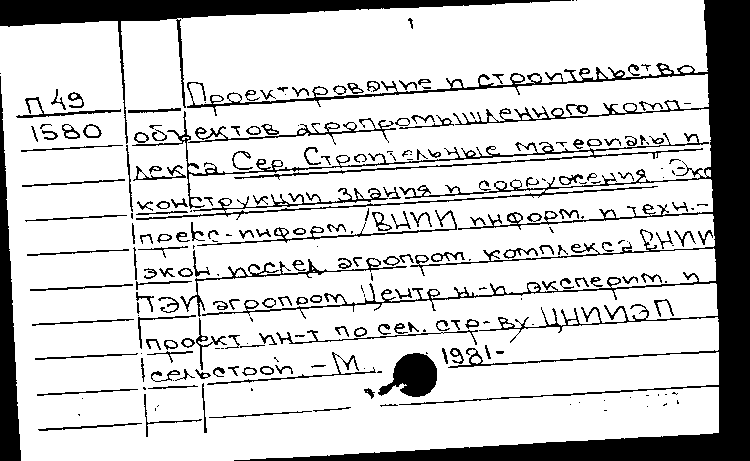 1
П 49 Проектирование и строительство
1580 объектов агропромышленного комп-
лекса Сер. „Строительные материалы и
конструкции, здания и сооружения": Экс
пресс-информ. / ВНИИ информ. и техн.-
экон. исслед. агропром. комплекса ВНИИ
ТЭИ агропром, Центр н.-и. эксперим. и
проект ин-т по сел. стр-ву ЦНИИЭП
сельстрой. - М. 1981-